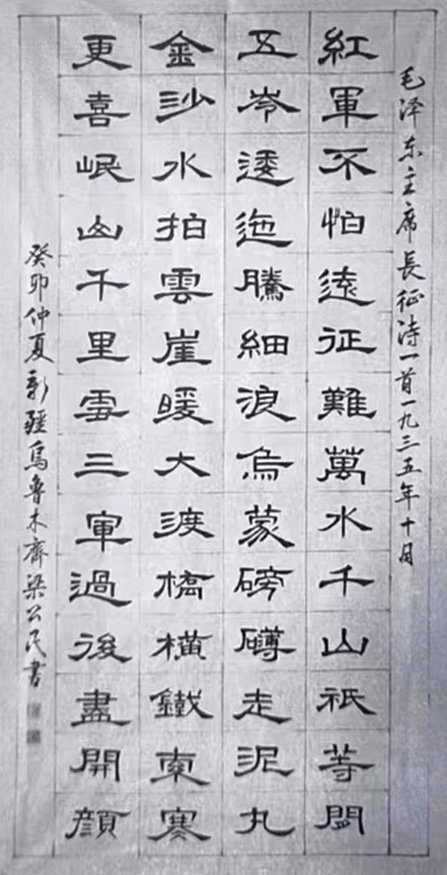 毛泽东主席長征诗一首一九三五年十月
紅軍不怕遠征難萬水千山祇等閒
五岺逶迤騰細浪烏蒙磅礴走泥丸
金沙水拍雲崖暖大渡橋橫鐵索寒
更喜岷山千里雪三軍過後盡開顔
癸卯仲夏新疆烏魯木齊梁公民書